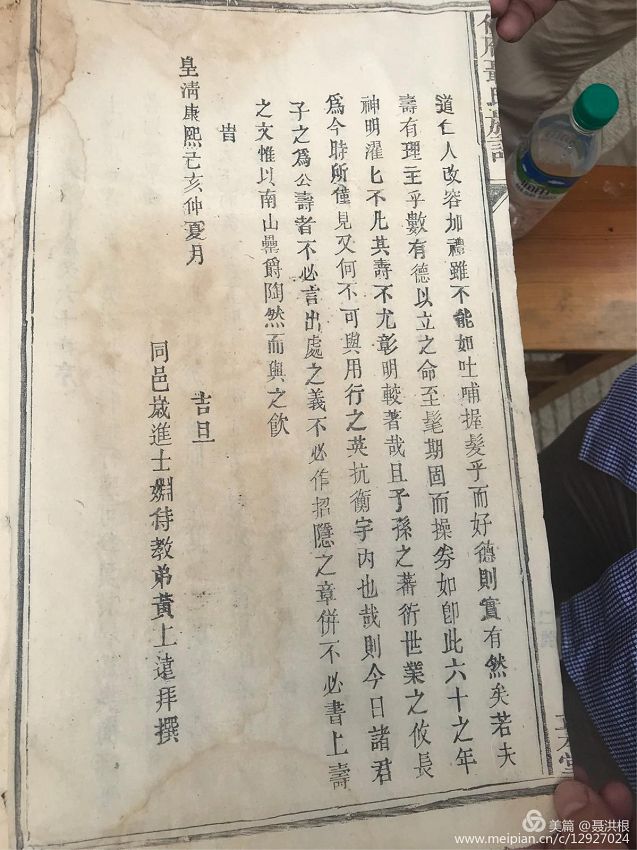 道仁人改容加禮雖不能如吐哺握髮乎而好德則實有然矣若夫
壽有理主乎數有德以立之命至髦期固而操劵如卽此六十之年
神明濯匕不凡其壽不尤彰明較著哉且子孫之蕃衍世業之攸長
爲今時所僅見又何不可與用行之英抗衡宇內也哉則今日諸君
子之爲公壽者不必言出處之義不必作招隱之章併不必書上壽
之文惟以南山罍爵陶然而與之飲
旹
皇淸康熙己亥仲夏月
吉旦
同邑嵗進士姻侍教弟黃上遠拜撰
美篇 @聶洪根
www.meipian.cn/c/12927024